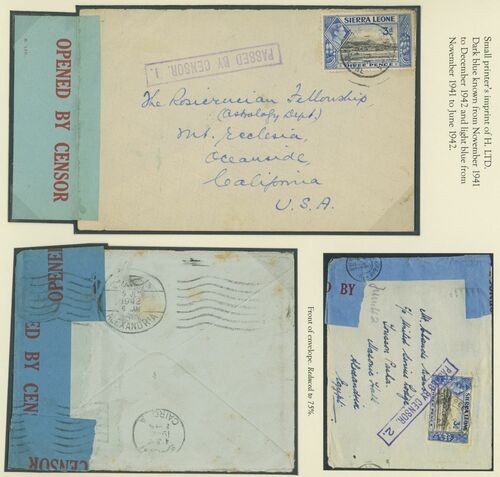 Small printer's imprint of H. LTD.
Dark blue known from November 1941
to December 1942 and light blue from
November 1941 to June 1942.
OPENED BY CENSOR
PASSED BY CENSOR
1.
SIERRA LEONE
3d
THREE PENCE
The Rosicrucian Fellowship
(Astrology Dept.)
Mt. Ecclesia,
Oceanside,
California
U.S.A.
OPENED BY CENSOR
1942
ALEXANDRIA
CAIRO
Front of envelope. Reduced to 75%.
BY
June 42
c/o United Service Lodge
Masonic Hall
Alexandria
Egypt
PASSED BY CENSOR
2.
SIERRA LEONE
3d
THREE PENCE